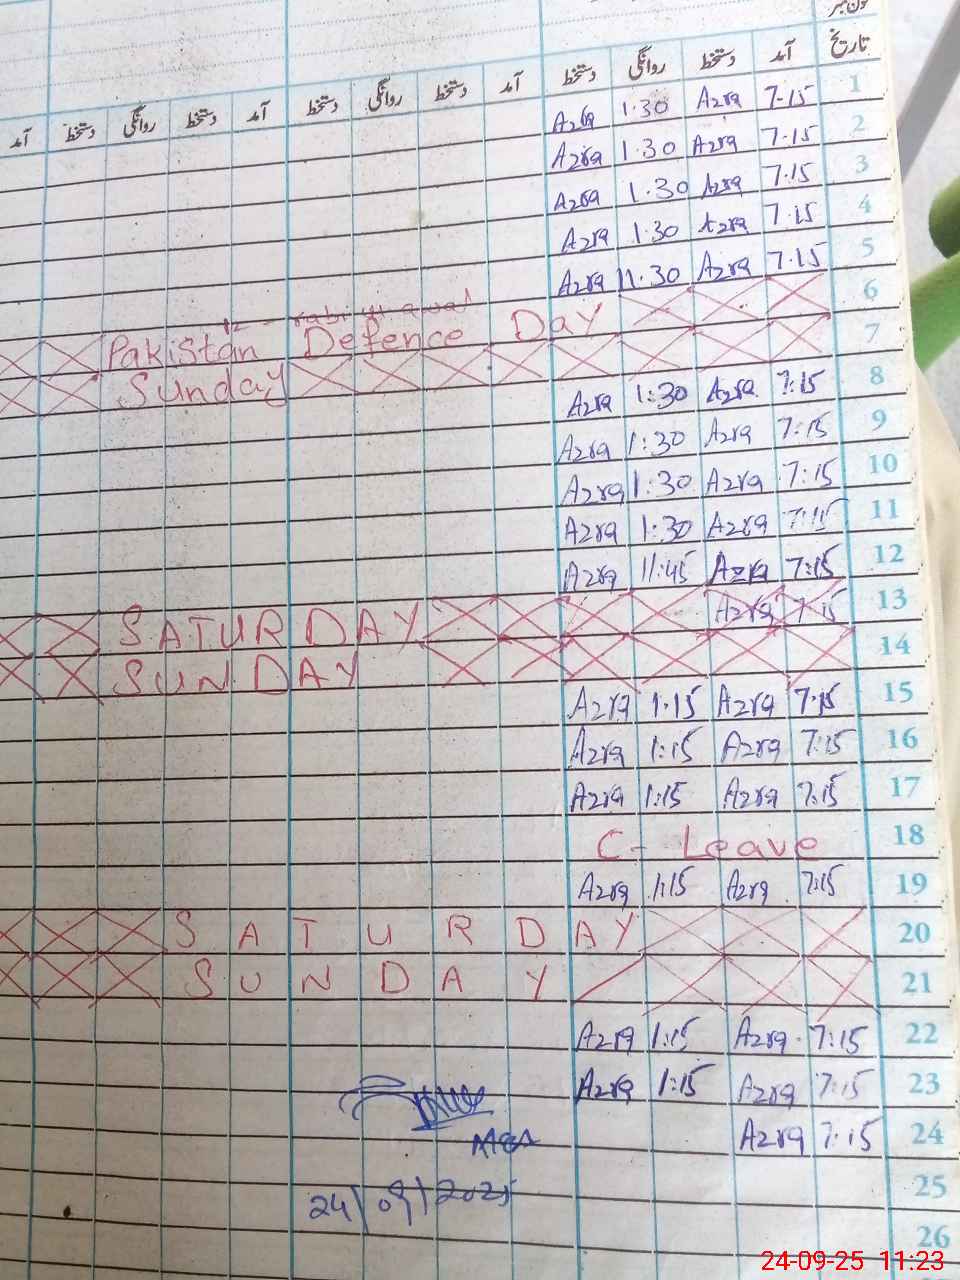 تاریخ آمد دستخط روانگی دستخط آمد دستخط روانگی دستخط آمد دستخط روانگی دستخط آمد
1 7-15 Azra 1:30 Azra
2 7.15 Azra 1.30 Azra
3 7.15 Azra 1.30 Azra
4 7.15 Azra 1.30 Azra
5 7.15 Azra 11.30 Azra
12 - rabi ul awal
6 Pakistan Defence Day
7 Sunday
8 7:15 Azra 1:30 Azra
9 7:15 Azra 1:30 Azra
10 7:15 Azra 1:30 Azra
11 7:15 Azra 1:30 Azra
12 7:15 Azra 11:45 Azra
13 7:15 Azra SATURDAY
14 SUNDAY
15 7.15 Azra 1.15 Azra
16 7:15 Azra 1:15 Azra
17 7:15 Azra 1:15 Azra
18 C- Leave
19 7:15 Azra 1:15 Azra
20 SATURDAY
21 SUNDAY
22 7:15 Azra 1:15 Azra
23 7:15 Azra 1:15 Azra
24 7:15 Azra
MEA
25
24/09/2025
26
24-09-25 11:23